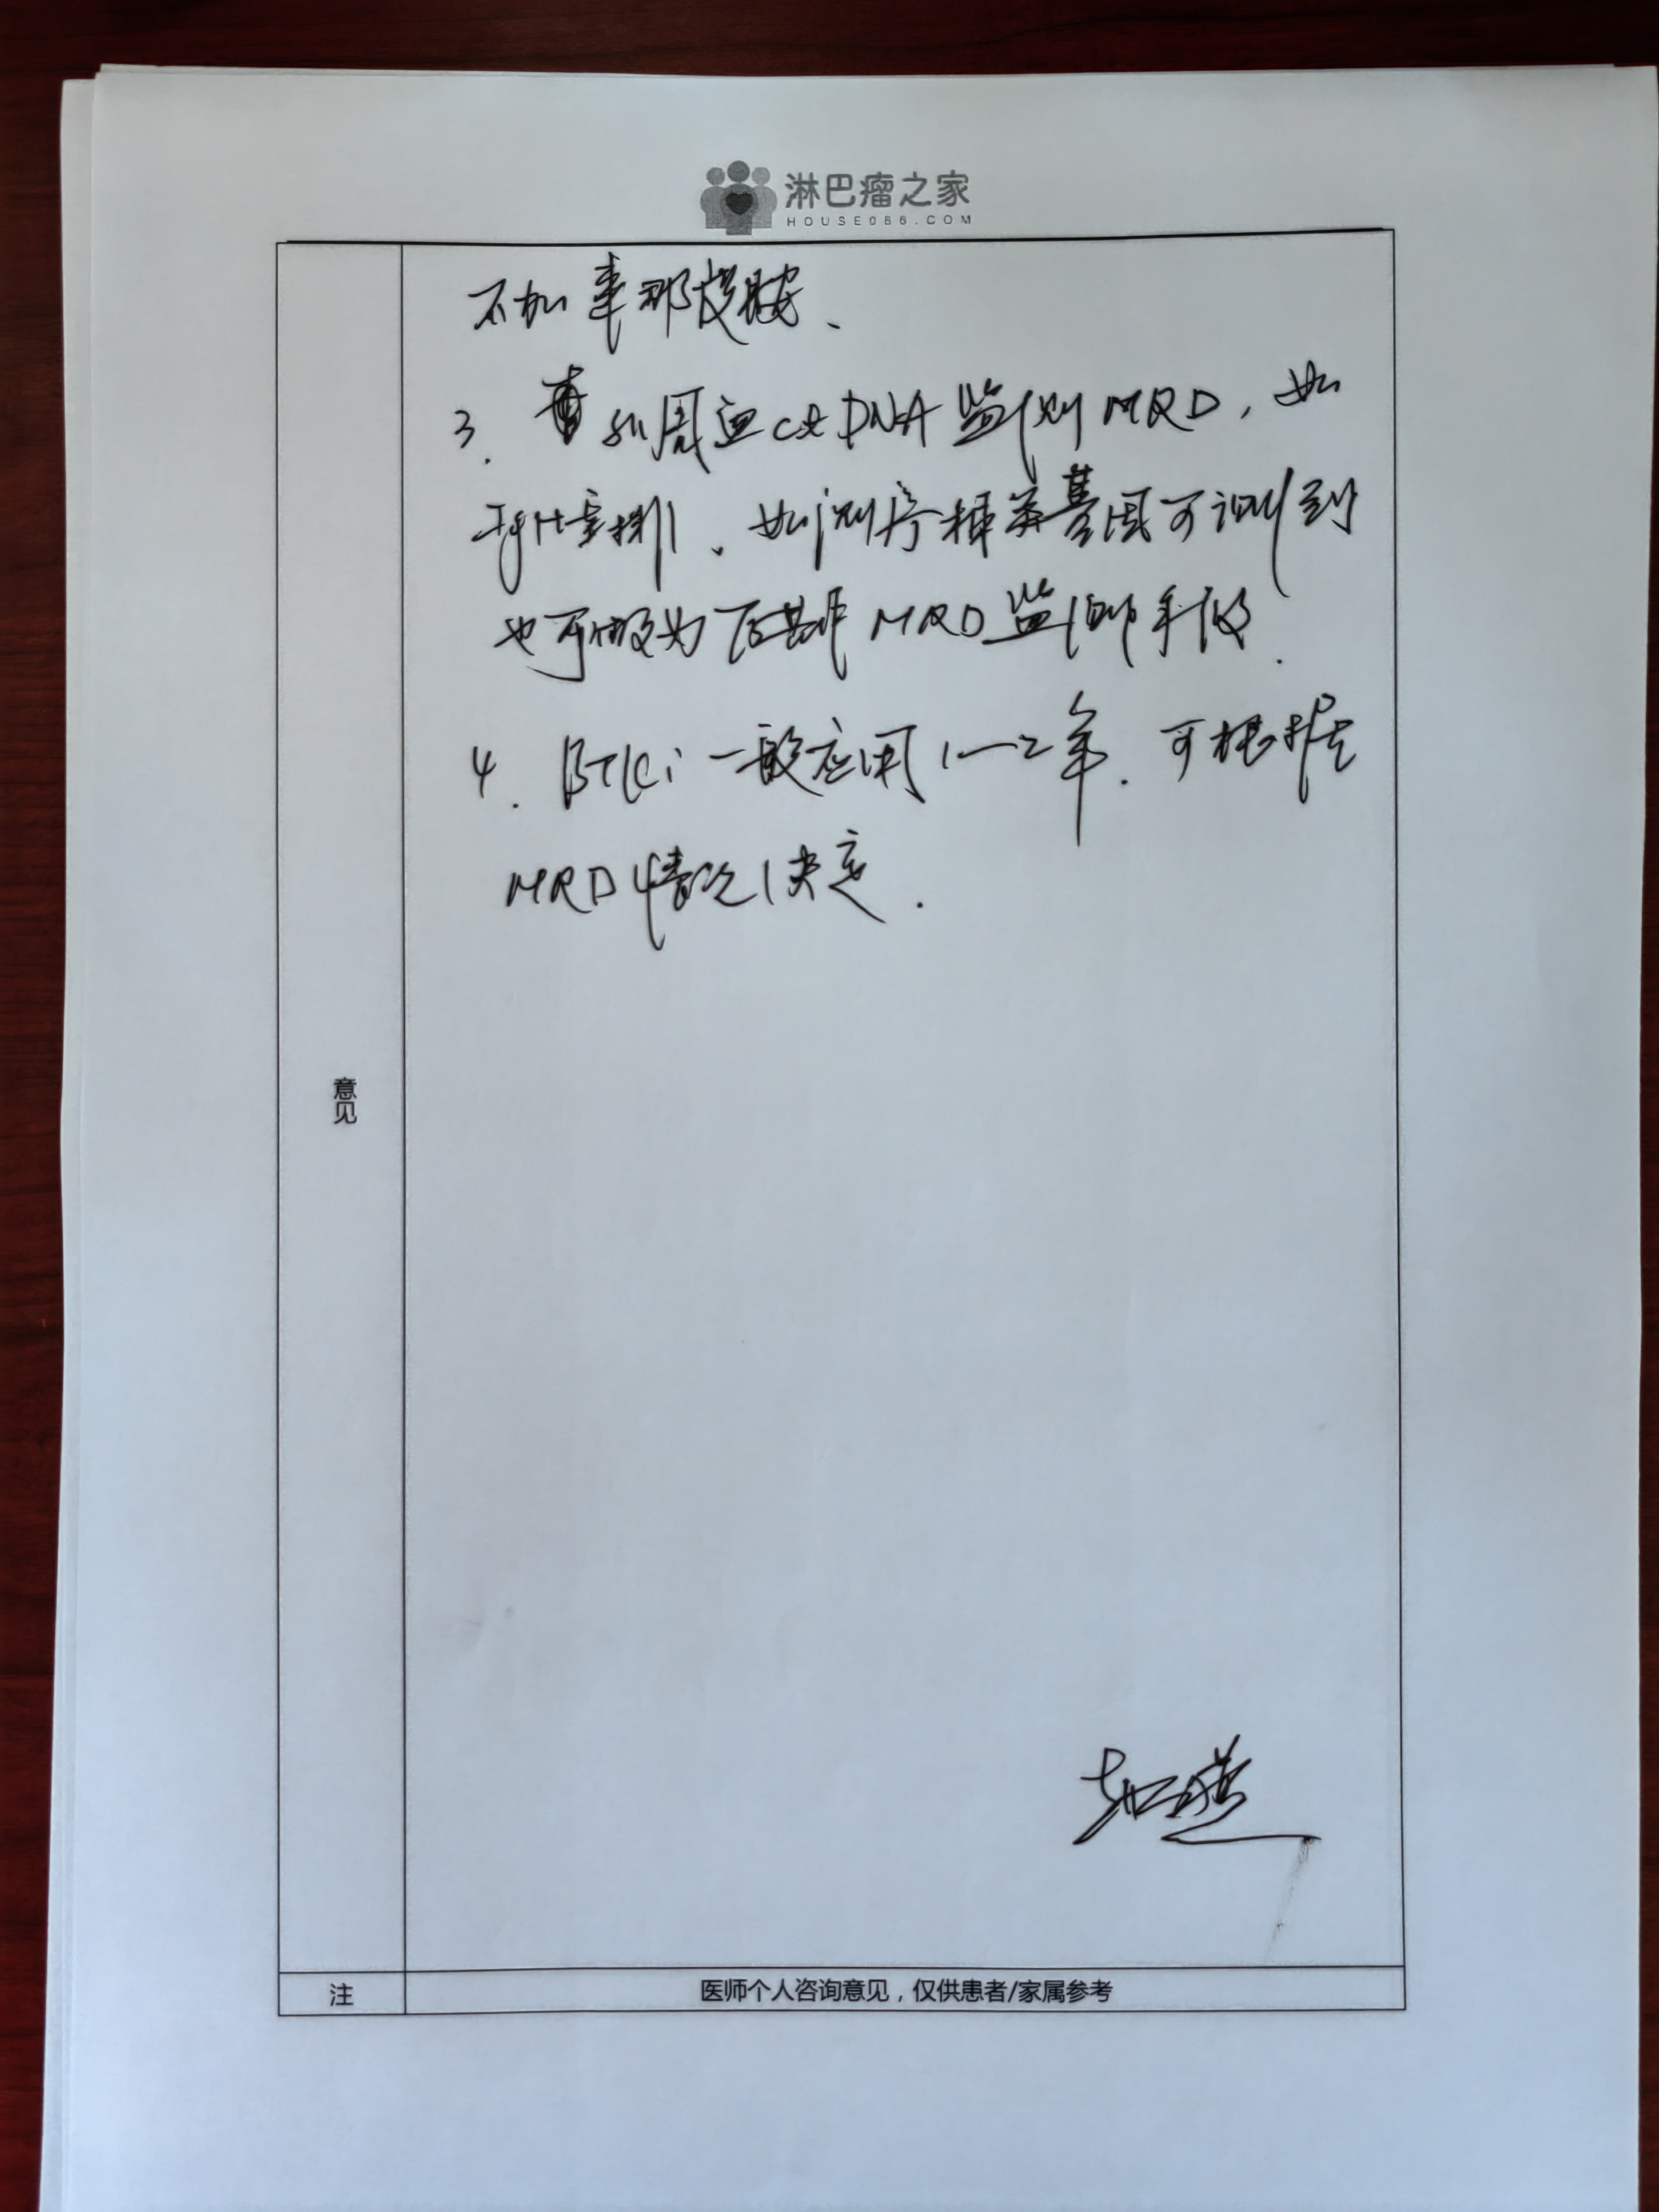 淋巴瘤之家
HOUSE086.COM
不加来那度胺、
3. 外周血ctDNA监测MRD，如
IgH重排、如测序种类基因可测到
也可做为后期MRD监测手段.
4. BTKi一般应用1—2年.可根据
MRD情况决定.
意见
注
医师个人咨询意见，仅供患者/家属参考